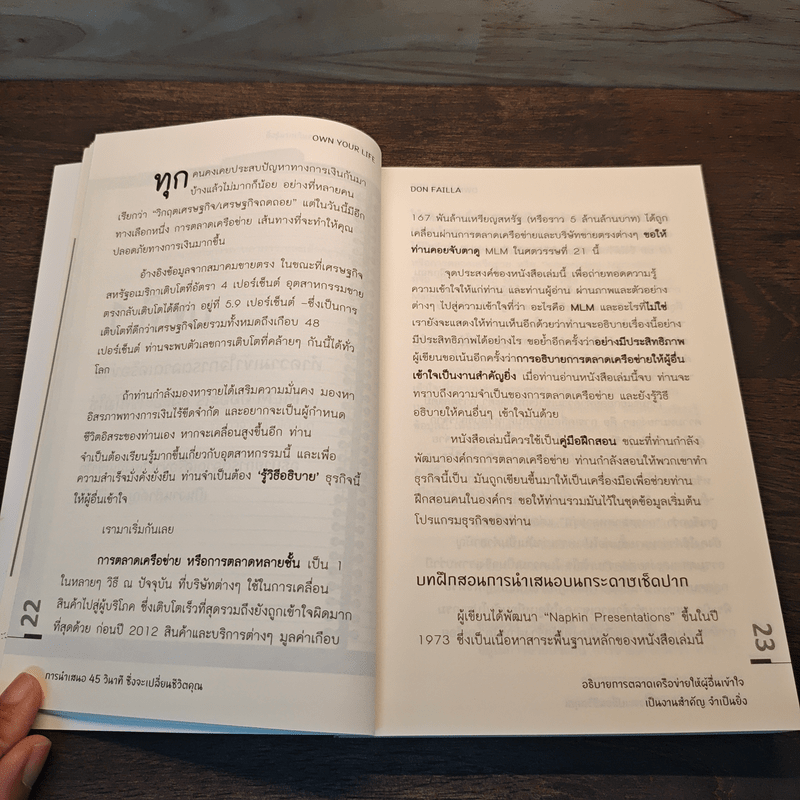 OWN YOUR LIFE
ทุกคนคงเคยประสบปัญหาทางการเงินกันมา
บ้างแล้วไม่มากก็น้อย อย่างที่หลายคน
เรียกว่า “วิกฤตเศรษฐกิจ/เศรษฐกิจถดถอย” แต่ในวันนี้มีอีก
ทางเลือกหนึ่ง การตลาดเครือข่าย เส้นทางที่จะทำให้คุณ
ปลอดภัยทางการเงินมากขึ้น
อ้างอิงข้อมูลจากสมาคมขายตรง ในขณะที่เศรษฐกิจ
สหรัฐอเมริกาเติบโตที่อัตรา 4 เปอร์เซ็นต์ อุตสาหกรรมขาย
ตรงกลับเติบโตได้ดีกว่า อยู่ที่ 5.9 เปอร์เซ็นต์ -ซึ่งเป็นการ
เติบโตที่ดีกว่าเศรษฐกิจโดยรวมทั้งหมดถึงเกือบ 48
เปอร์เซ็นต์ ท่านจะพบตัวเลขการเติบโตที่คล้ายๆ กันนี้ได้ทั่ว
โลก
ถ้าท่านกำลังมองหารายได้เสริมความมั่นคง มองหา
อิสรภาพทางการเงินไร้ขีดจำกัด และอยากจะเป็นผู้กำหนด
ชีวิตอิสระของท่านเอง หากจะเคลื่อนสูงขึ้นอีก ท่าน
จำเป็นต้องเรียนรู้มากขึ้นเกี่ยวกับอุตสาหกรรมนี้ และเพื่อ
ความสำเร็จมั่งคั่งยั่งยืน ท่านจำเป็นต้อง ‘รู้วิธีอธิบาย’ ธุรกิจนี้
ให้ผู้อื่นเข้าใจ
เรามาเริ่มกันเลย
การตลาดเครือข่าย หรือการตลาดหลายชั้น เป็น 1
ในหลายๆ วิธี ณ ปัจจุบัน ที่บริษัทต่างๆ ใช้ในการเคลื่อน
สินค้าไปสู่ผู้บริโภค ซึ่งเติบโตเร็วที่สุดรวมถึงยังถูกเข้าใจผิดมาก
ที่สุดด้วย ก่อนปี 2012 สินค้าและบริการต่างๆ มูลค่าเกือบ
22
การนำเสนอ 45 วินาที ซึ่งจะเปลี่ยนชีวิตคุณ
DON FAILLA
167 พันล้านเหรียญสหรัฐ (หรือราว 5 ล้านล้านบาท) ได้ถูก
เคลื่อนผ่านการตลาดเครือข่ายและบริษัทขายตรงต่างๆ ขอให้
ท่านคอยจับตาดู MLM ในศตวรรษที่ 21 นี้
จุดประสงค์ของหนังสือเล่มนี้ เพื่อถ่ายทอดความรู้
ความเข้าใจให้แก่ท่าน และท่านผู้อ่าน ผ่านภาพและตัวอย่าง
ต่างๆ ไปสู่ความเข้าใจที่ว่า อะไรคือ MLM และอะไรที่ไม่ใช่
เรายังจะแสดงให้ท่านเห็นอีกด้วยว่าท่านจะอธิบายเรื่องนี้อย่าง
มีประสิทธิภาพได้อย่างไร ขอย้ำอีกครั้งว่าอย่างมีประสิทธิภาพ
ผู้เขียนขอเน้นอีกครั้งว่าการอธิบายการตลาดเครือข่ายให้ผู้อื่น
เข้าใจเป็นงานสำคัญยิ่ง เมื่อท่านอ่านหนังสือเล่มนี้จบ ท่านจะ
ทราบถึงความจำเป็นของการตลาดเครือข่าย และยังรู้วิธี
อธิบายให้คนอื่นๆ เข้าใจมันด้วย
หนังสือเล่มนี้ควรใช้เป็นคู่มือฝึกสอน ขณะที่ท่านกำลัง
พัฒนาองค์กรการตลาดเครือข่าย ท่านกำลังสอนให้พวกเขาทำ
ธุรกิจนี้เป็น มันถูกเขียนขึ้นมาให้เป็นเครื่องมือเพื่อช่วยท่าน
ฝึกสอนคนในองค์กร ขอให้ท่านรวมมันไว้ในชุดข้อมูลเริ่มต้น
โปรแกรมธุรกิจของท่าน
บทฝึกสอนการนำเสนอบนกระดาษเช็ดปาก
ผู้เขียนได้พัฒนา “Napkin Presentations” ขึ้นในปี
1973 ซึ่งเป็นเนื้อหาสาระพื้นฐานหลักของหนังสือเล่มนี้
23
อธิบายการตลาดเครือข่ายให้ผู้อื่นเข้าใจ
เป็นงานสำคัญ จำเป็นยิ่ง